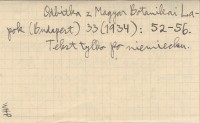 Odbitka z Magyar Botanikai La-
pok (Budapest) 33 (1934): 52-56.
Tekst tylko po niemiecku.